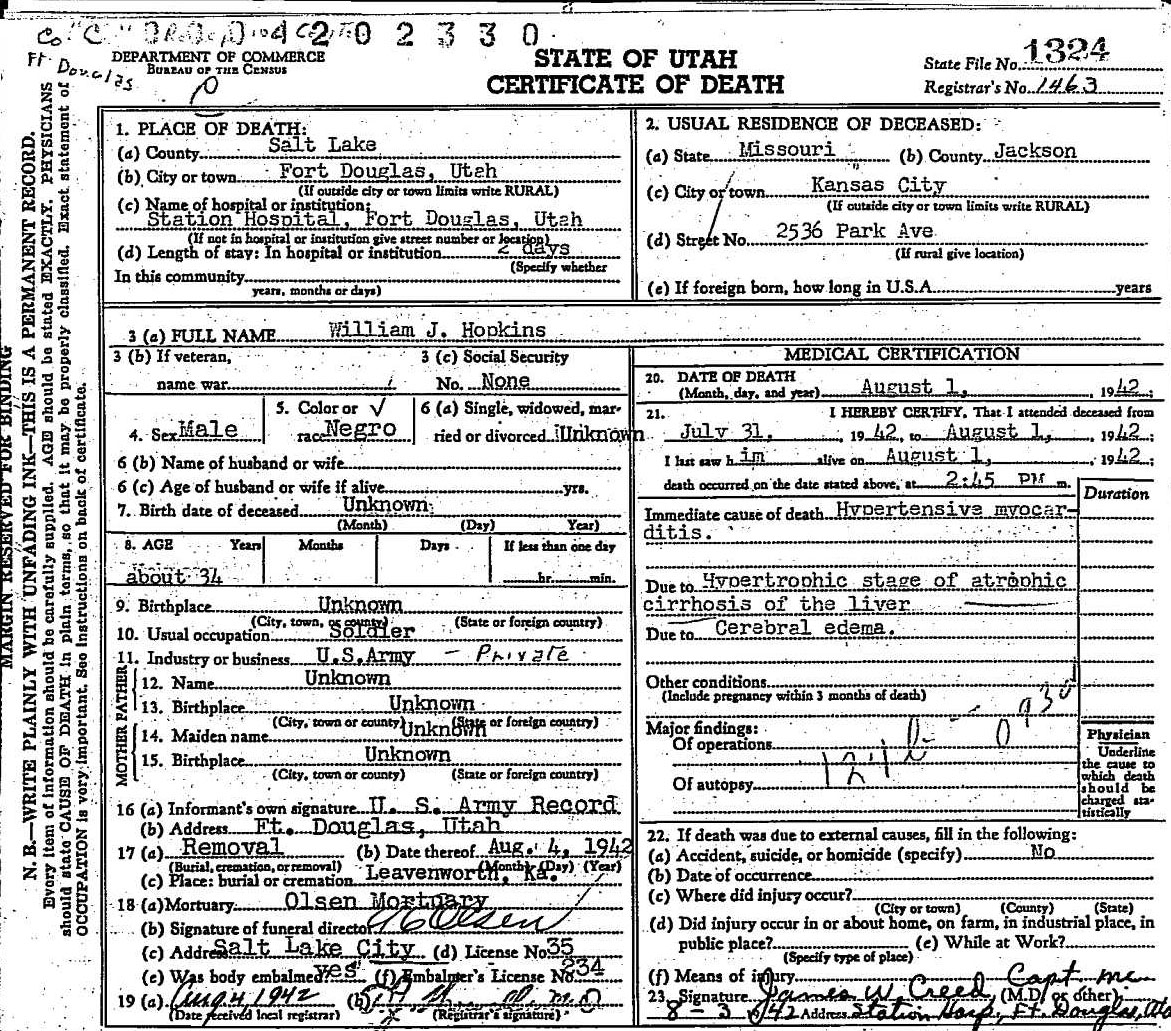 Co "C"
4202330
Ft. Douglas
DEPARTMENT OF COMMERCE
BUREAU OF THE CENSUS
STATE OF UTAH
CERTIFICATE OF DEATH
State File No. 1324
Registrar's No. 1463
MARGIN RESERVED FOR BINDING
N. B.—WRITE PLAINLY WITH UNFADING INK—THIS IS A PERMANENT RECORD.
Every item of information should be carefully supplied. AGE should be stated EXACTLY. PHYSICIANS
should state CAUSE OF DEATH in plain terms, so that it may be properly classified. Exact statement of
OCCUPATION is very important. See instructions on back of certificate.
1. PLACE OF DEATH:
(a) County Salt Lake
(b) City or town Fort Douglas, Utah
(If outside city or town limits write RURAL)
(c) Name of hospital or institution:
Station Hospital, Fort Douglas, Utah
(If not in hospital or institution give street number or location)
(d) Length of stay: In hospital or institution 2 days
(Specify whether
In this community
years, months or days)
2. USUAL RESIDENCE OF DECEASED:
(a) State Missouri (b) County Jackson
(c) City or town Kansas City
(If outside city or town limits write RURAL)
(d) Street No. 2536 Park Ave
(If rural give location)
(e) If foreign born, how long in U.S.A. years
3 (a) FULL NAME William J. Hopkins
3 (b) If veteran,
name war
3 (c) Social Security
No. None
4. Sex Male
5. Color or √
race Negro
6 (a) Single, widowed, mar-
ried or divorced Unknown
6 (b) Name of husband or wife
6 (c) Age of husband or wife if alive yrs.
7. Birth date of deceased Unknown
(Month) (Day) Year)
8. AGE Years Months Days If less than one day
about 34 hr. min.
9. Birthplace Unknown
(City, town, or county) (State or foreign country)
10. Usual occupation Soldier
11. Industry or business U.S.Army - Private
FATHER
12. Name Unknown
13. Birthplace Unknown
(City, town or county) (State or foreign country)
MOTHER
14. Maiden name Unknown
15. Birthplace Unknown
(City, town or county) (State or foreign country)
16 (a) Informant's own signature U. S. Army Record
(b) Address Ft. Douglas, Utah
17 (a) Removal (b) Date thereof Aug. 4, 1942
(Burial, cremation, or removal) (Month) (Day) (Year)
(c) Place: burial or cremation Leavenworth, Ka.
18 (a) Mortuary Olsen Mortuary
(b) Signature of funeral director Olsen
(c) Address Salt Lake City (d) License No. 35
(e) Was body embalmed? yes (f) Embalmer's License No. 234
19 (a) Aug 4, 1942 (b)
(Date received local registrar) (Registrar's signature)
MEDICAL CERTIFICATION
20. DATE OF DEATH
(Month, day, and year) August 1, 1942
21. I HEREBY CERTIFY, That I attended deceased from
July 31, 1942, to August 1, 1942;
I last saw him alive on August 1, 1942;
death occurred on the date stated above, at 2:45 PM m.
Duration
Immediate cause of death Hypertensive myocar-
ditis.
Due to Hypertrophic stage of atrophic
cirrhosis of the liver
Due to Cerebral edema.
Other conditions
(Include pregnancy within 3 months of death)
Major findings:
Of operations
Of autopsy
Physician
Underline
the cause to
which death
should be
charged sta-
tistically
22. If death was due to external causes, fill in the following:
(a) Accident, suicide, or homicide (specify) No
(b) Date of occurrence
(c) Where did injury occur?
(City or town) (County) (State)
(d) Did injury occur in or about home, on farm, in industrial place, in
public place? (e) While at Work?
(Specify type of place)
(f) Means of injury
23. Signature James W Creed, Capt MC (M.D. or other)
8-3 1942 Address Station Hosp, Ft. Douglas, Ut